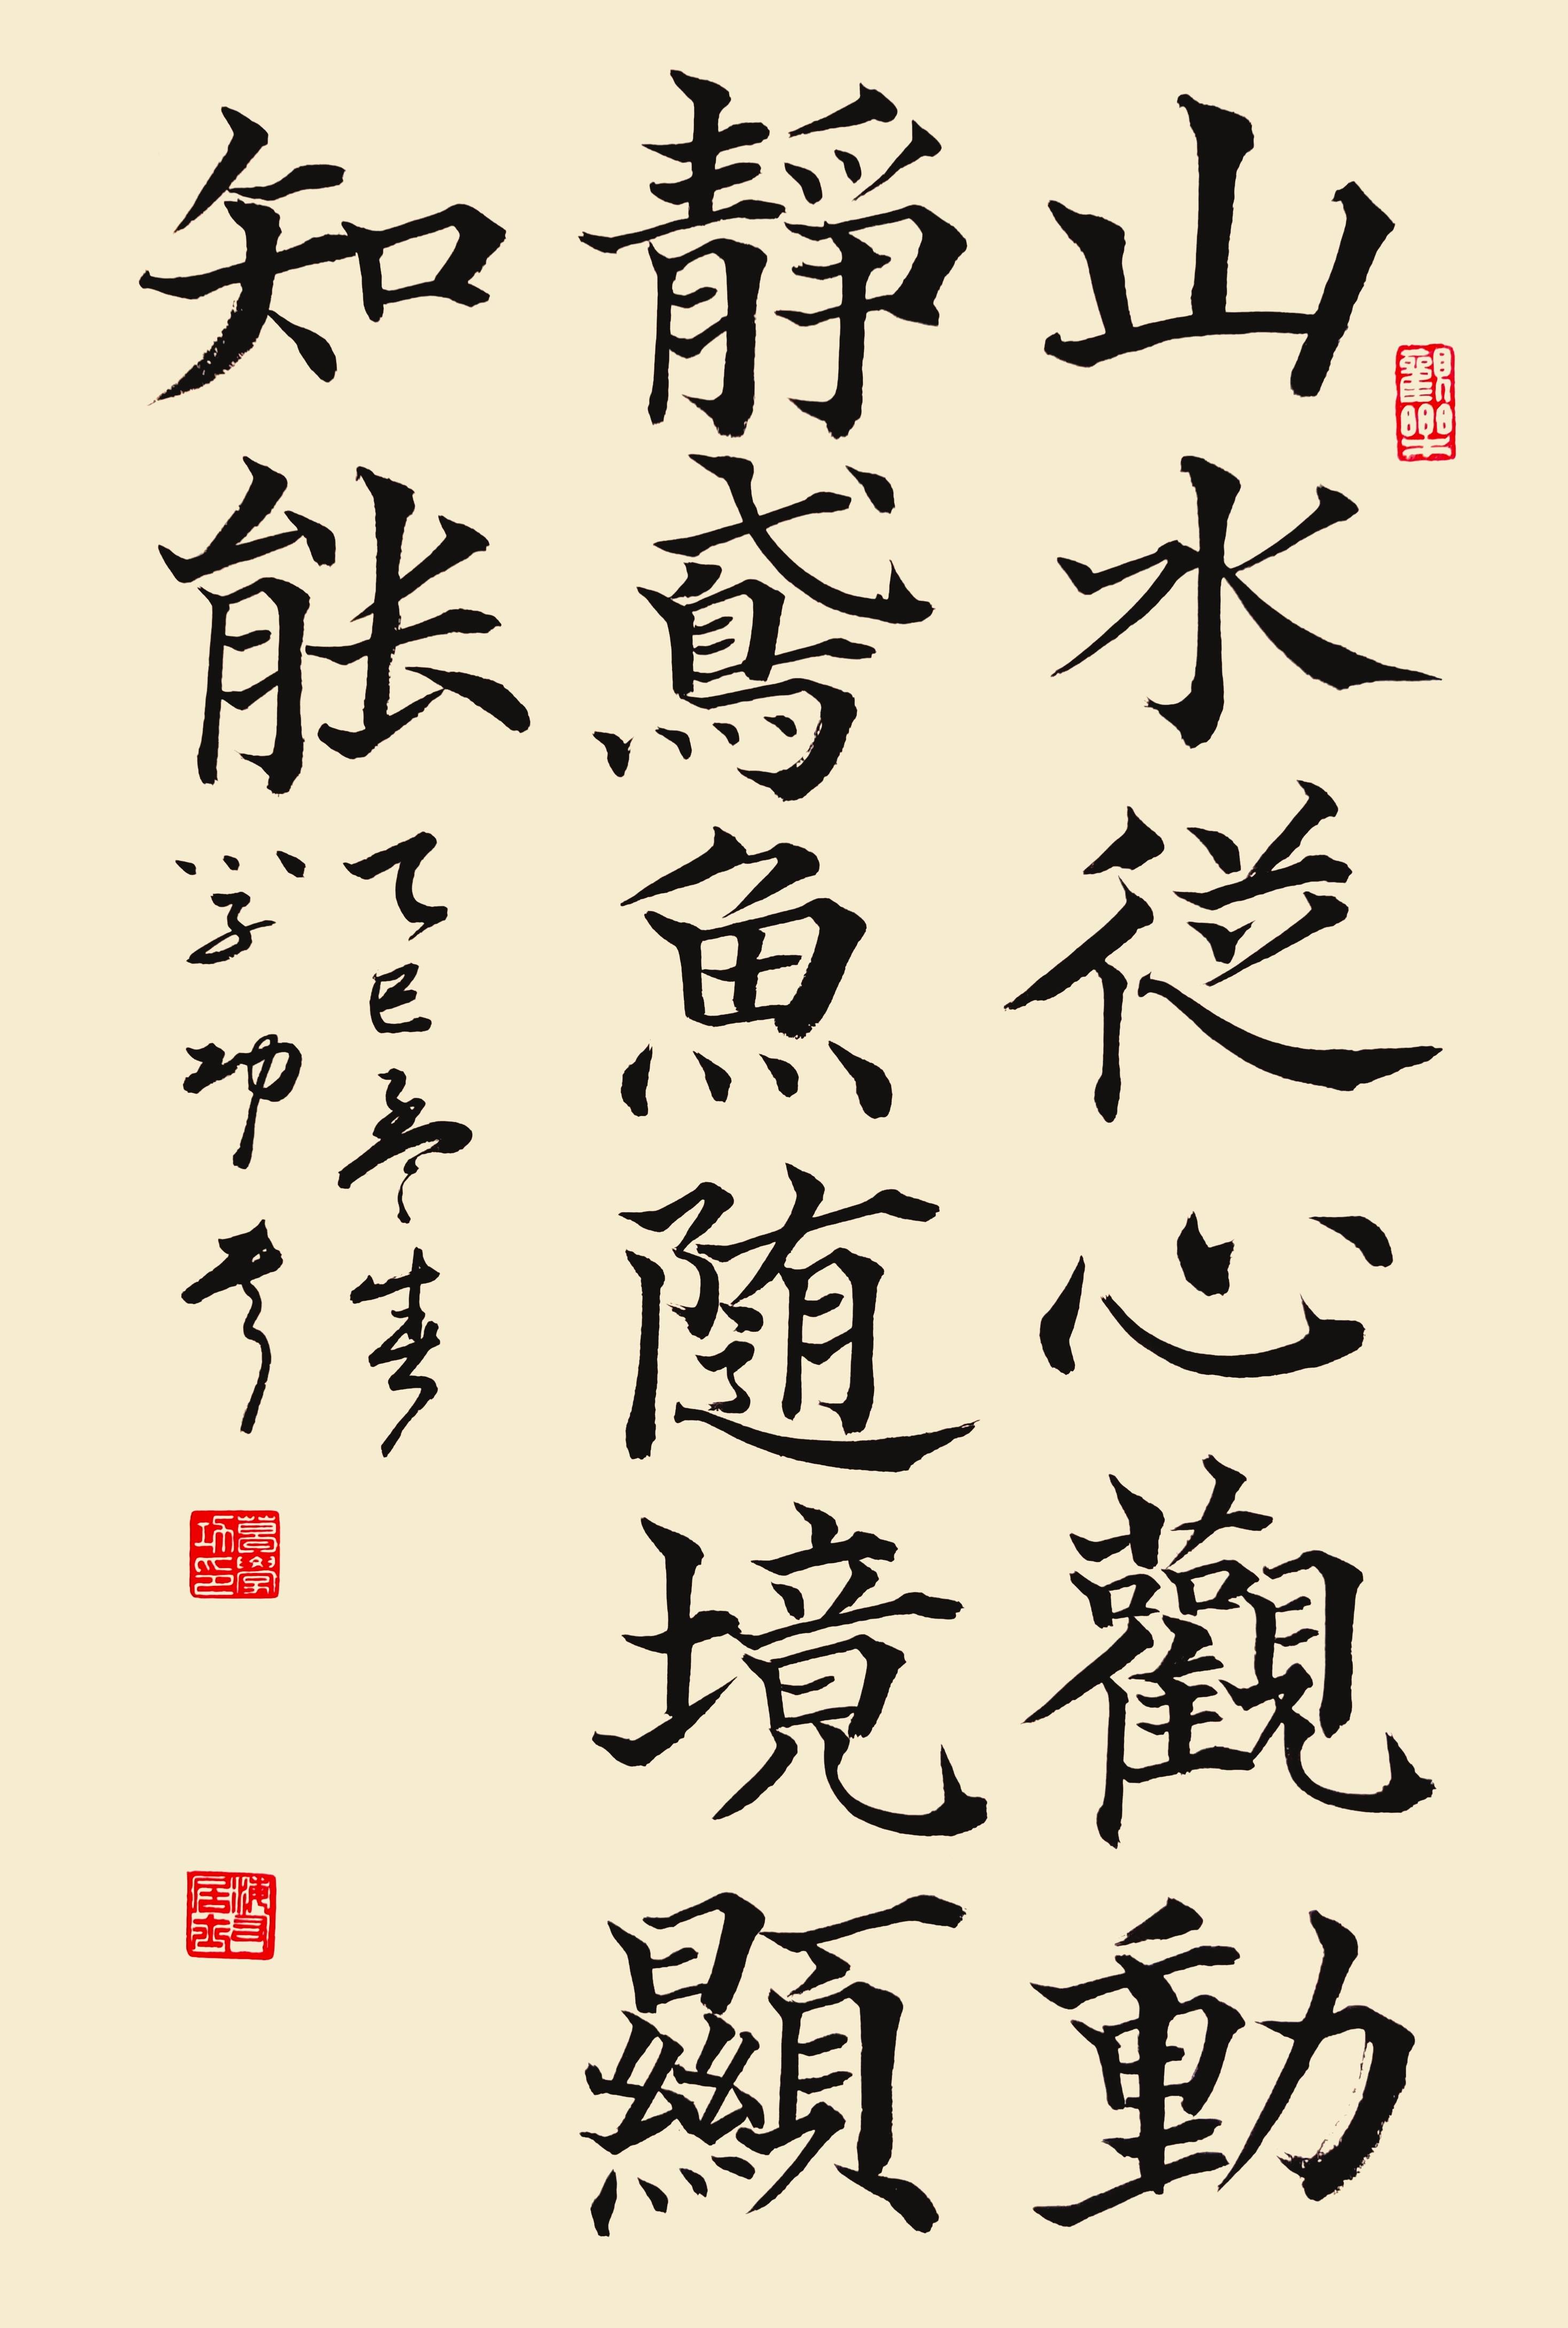 山水從心觀動
靜鳶魚随境顯
知能
乙巳新春
学功書
觀樂